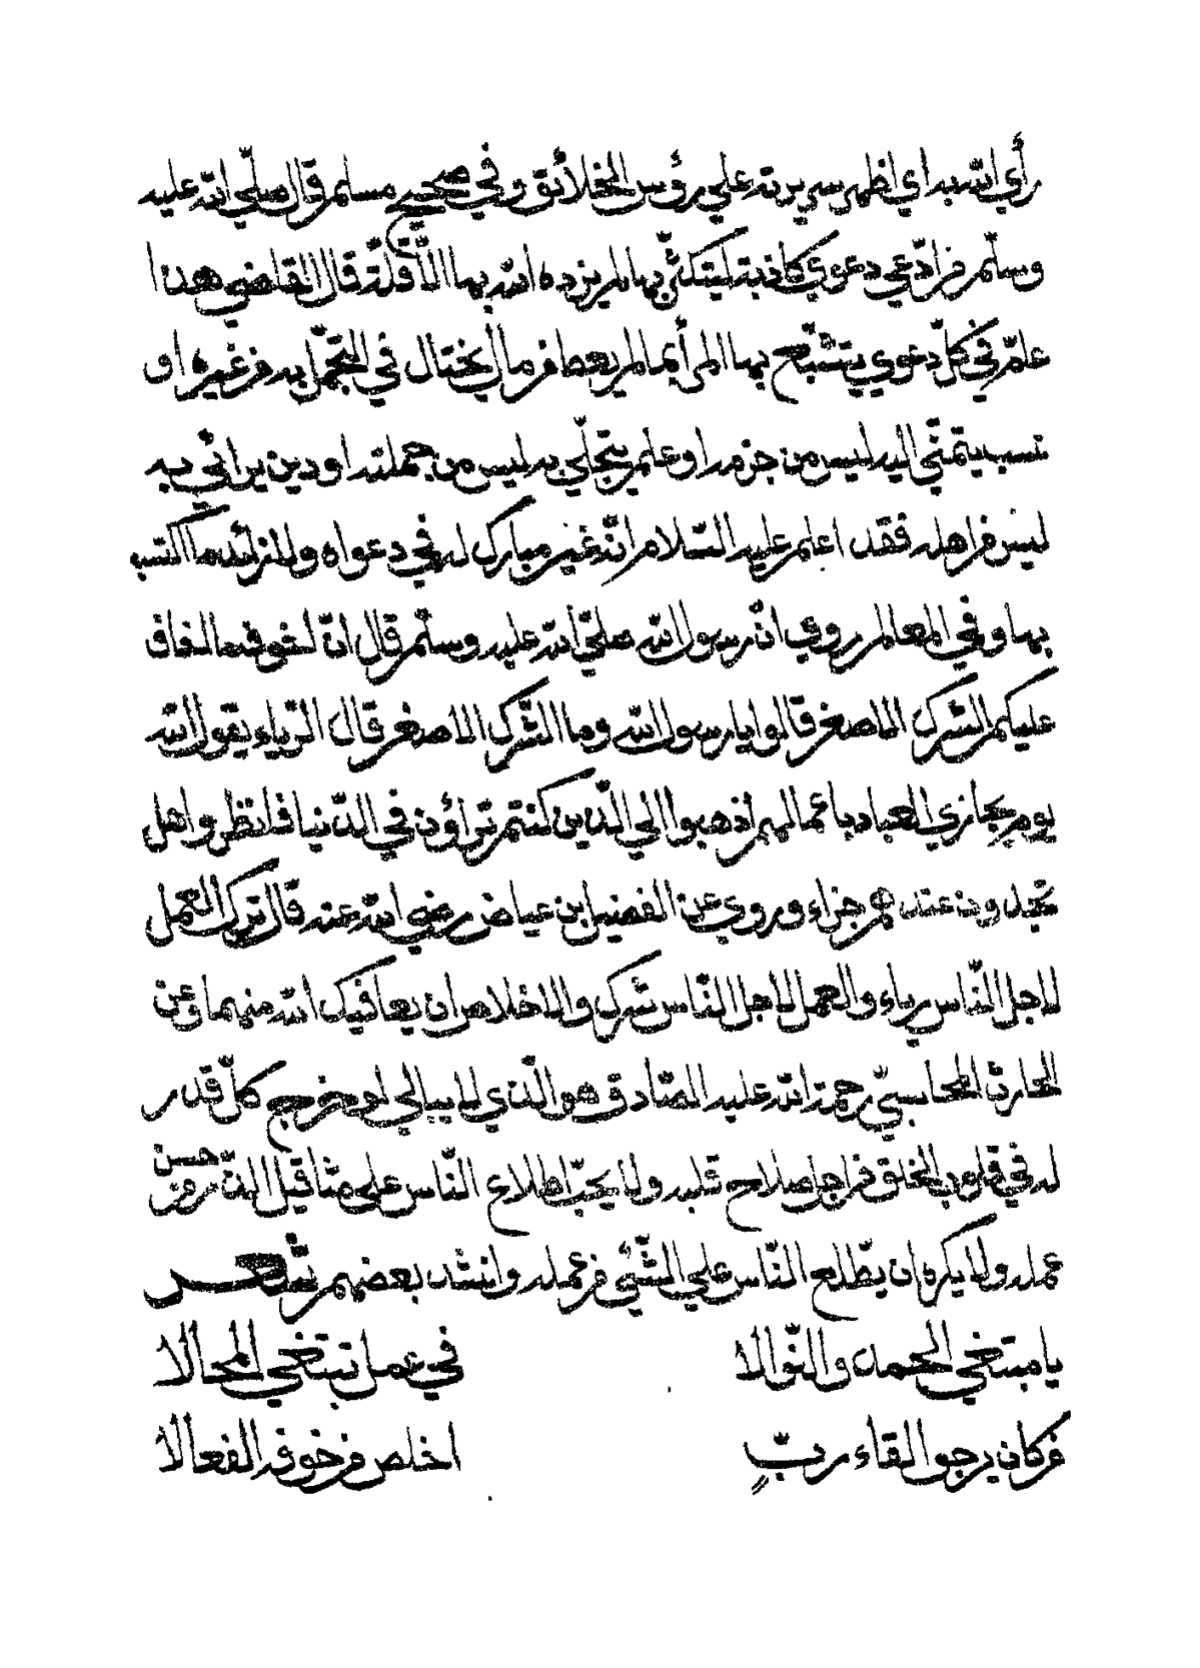 رأي الله به اي اظهر سريرته علي رؤس الخلائق وفي صحيح مسلم قال صلّي الله عليه
وسلّم من ادّعي دعوي كاذبة ليتكثّر بها لم يزده الله بها الّا قلّة قال القاضي هذا
عامّ في كلّ دعوي يتشبّع بها المرأ بما لم يعط من مال يختال في التجمّل به من غيره او
نسب ينتمي اليه ليس من جزمه او علم يتحلّي به ليس من جملته او دين يرائي به
ليس من اهله فقد اعلم عليه السّلام انّه غير مبارك له في دعواه ولا زائد ما اكتسبه
بها وفي المعالم روي انّ رسول الله صلّي الله عليه وسلّم قال انّ اخوف ما اخاف
عليكم الشرك الاصغر قالوا يا رسول الله وما الشّرك الاصغر قال الرّياء يقول الله
يوم يجازي العباد باعمالهم اذهبوا الي الّذين كنتم تراؤن في الدّنيا فانظروا هل
تجدون عندهم جزاء وروي عن الفضيل بن عياض رضي الله عنه قال ترك العمل
لاجل النّاس رياء والعمل لاجل النّاس شرك والاخلاص ان يعافيك الله منهما وعن
الحارث المحاسبيّ رحمة الله عليه الصّادق هو الّذي لا يبالي لو خرج كلّ قدر
له في قلوب الخلق من اجل صلاح قلبه ولا يحبّ اطلاع النّاس علي مثاقيل الذّرّ من حسن
عمله ولا يكره ان يطّلع النّاس علي الشّيّء من عمله وانشد بعضهم شعر
يا مبتغي الحمد والنّوالا في عمل تبتغي المحالا
من كان يرجو القاء ربّ اخلص من خوفه الفعالا